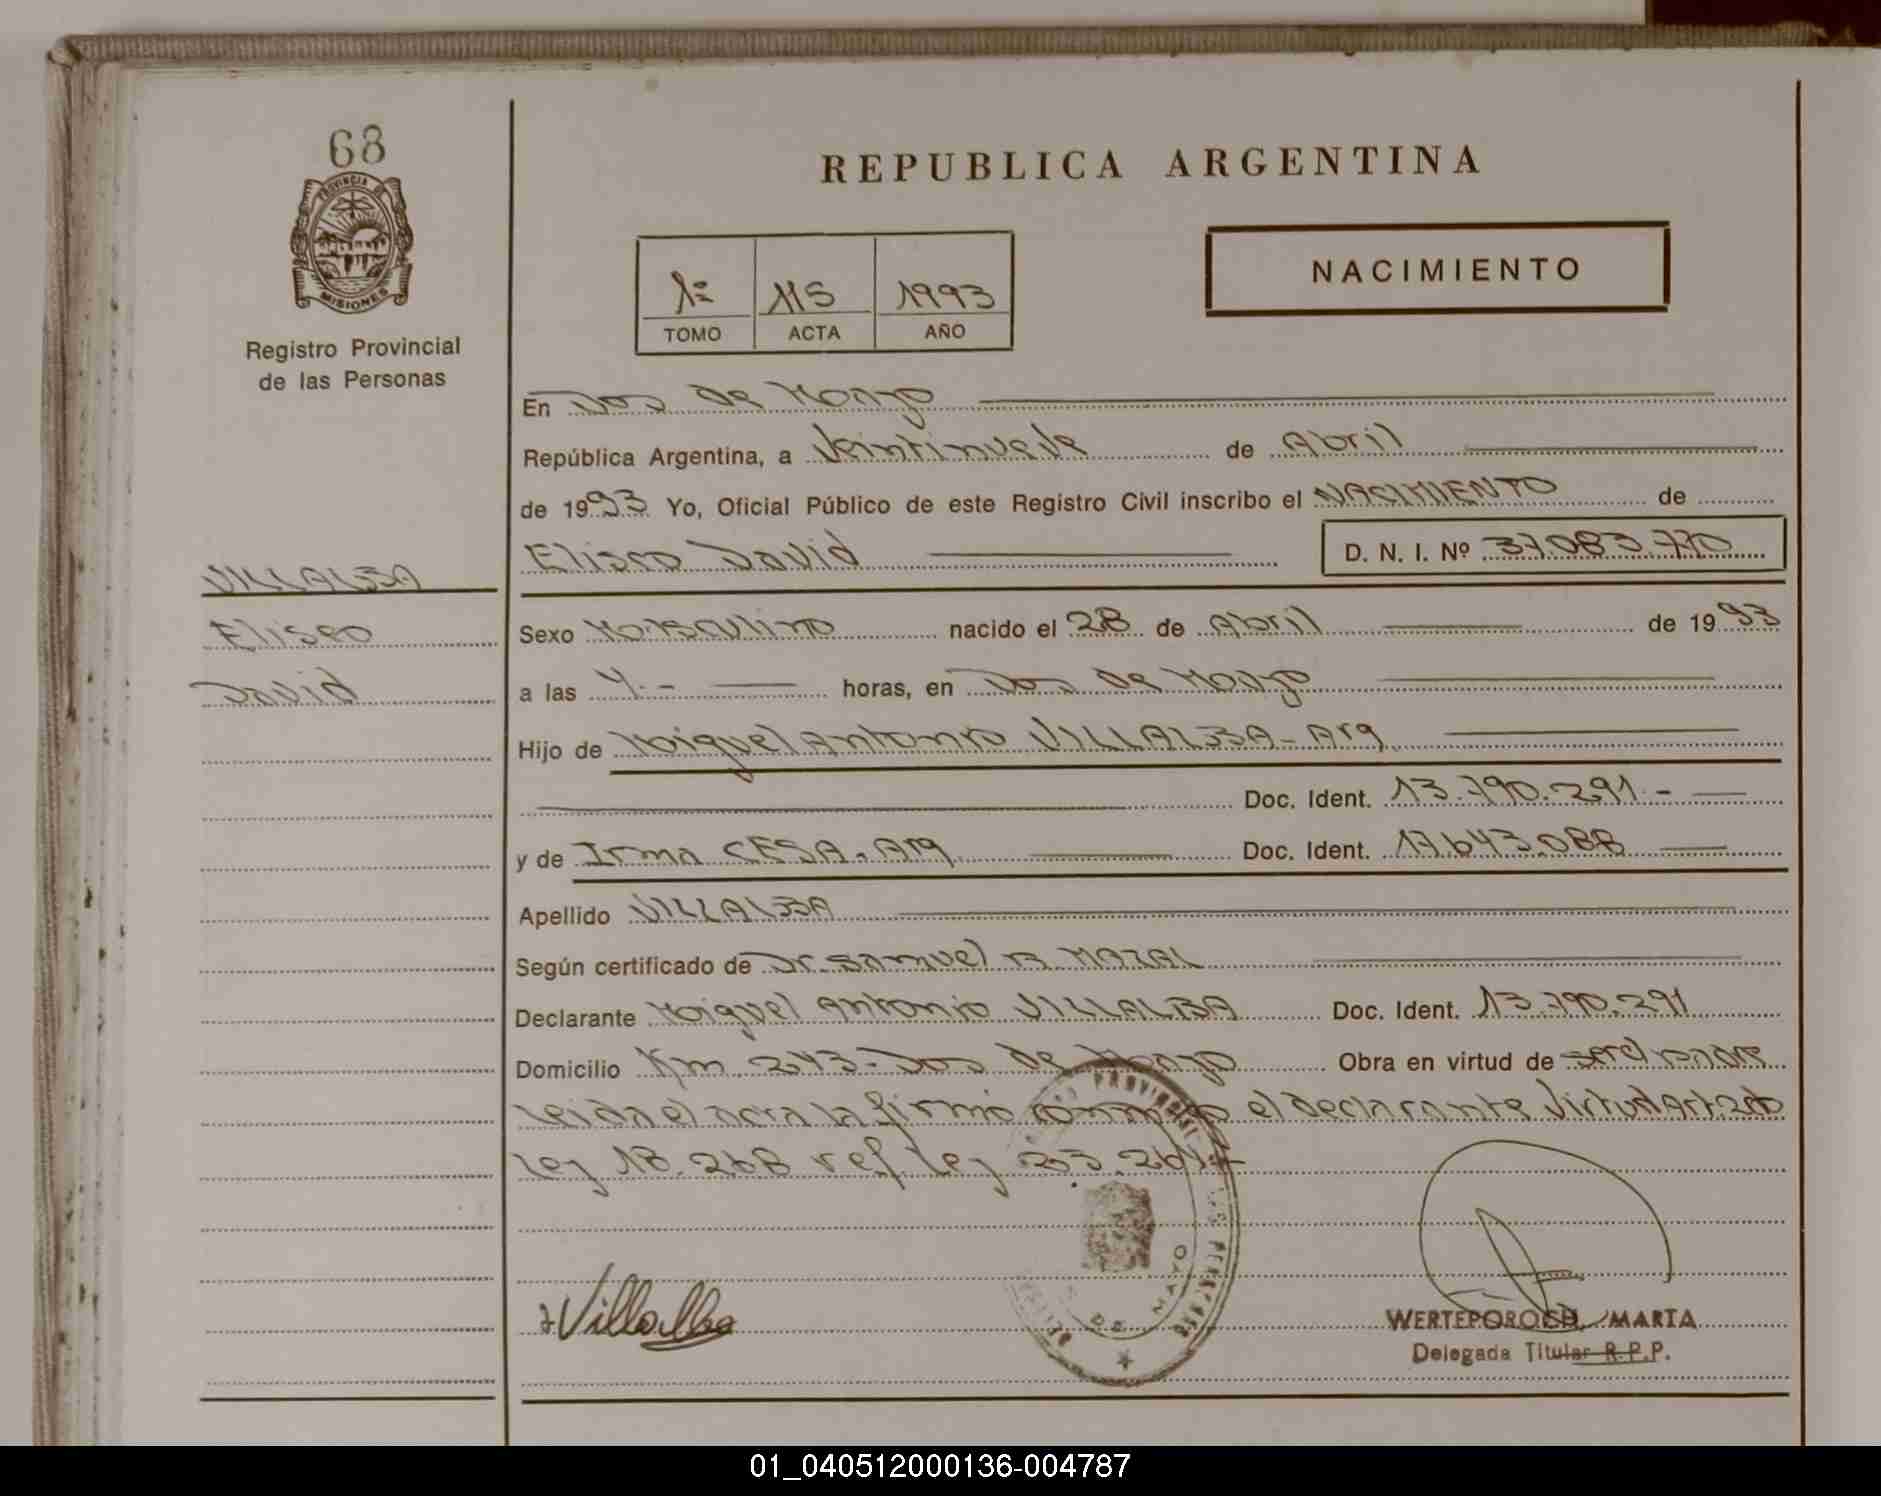 68
PROVINCIA DE
MISIONES
Registro Provincial
de las Personas
VILLALBA
Eliseo
David
REPUBLICA ARGENTINA
1º 115 1993
TOMO ACTA AÑO
NACIMIENTO
En Dos de Mayo
República Argentina, a Veintinueve de Abril
de 1993 Yo, Oficial Público de este Registro Civil inscribo el NACIMIENTO de
Eliseo David D. N. I. Nº 37.083.770
Sexo Masculino nacido el 28 de Abril de 1993
a las 4.- horas, en Dos de Mayo
Hijo de Miguel Antonio VILLALBA - Arg.
Doc. Ident. 13.790.291.-
y de Irma CESA. Arg Doc. Ident. 17.643.088
Apellido VILLALBA
Según certificado de Dr. Samuel B. MAZAL
Declarante Miguel Antonio VILLALBA Doc. Ident. 13.790.291
Domicilio Km. 243 - Dos de Mayo Obra en virtud de ser el padre
Leida el acta la firma conmigo el declarante Virtud Art
Ley 18.268 ref. Ley 23.264
Villalba
DE MAYO
WERTEPOROCH, MARTA
Delegada Titular R.P.P.
01_040512000136-004787